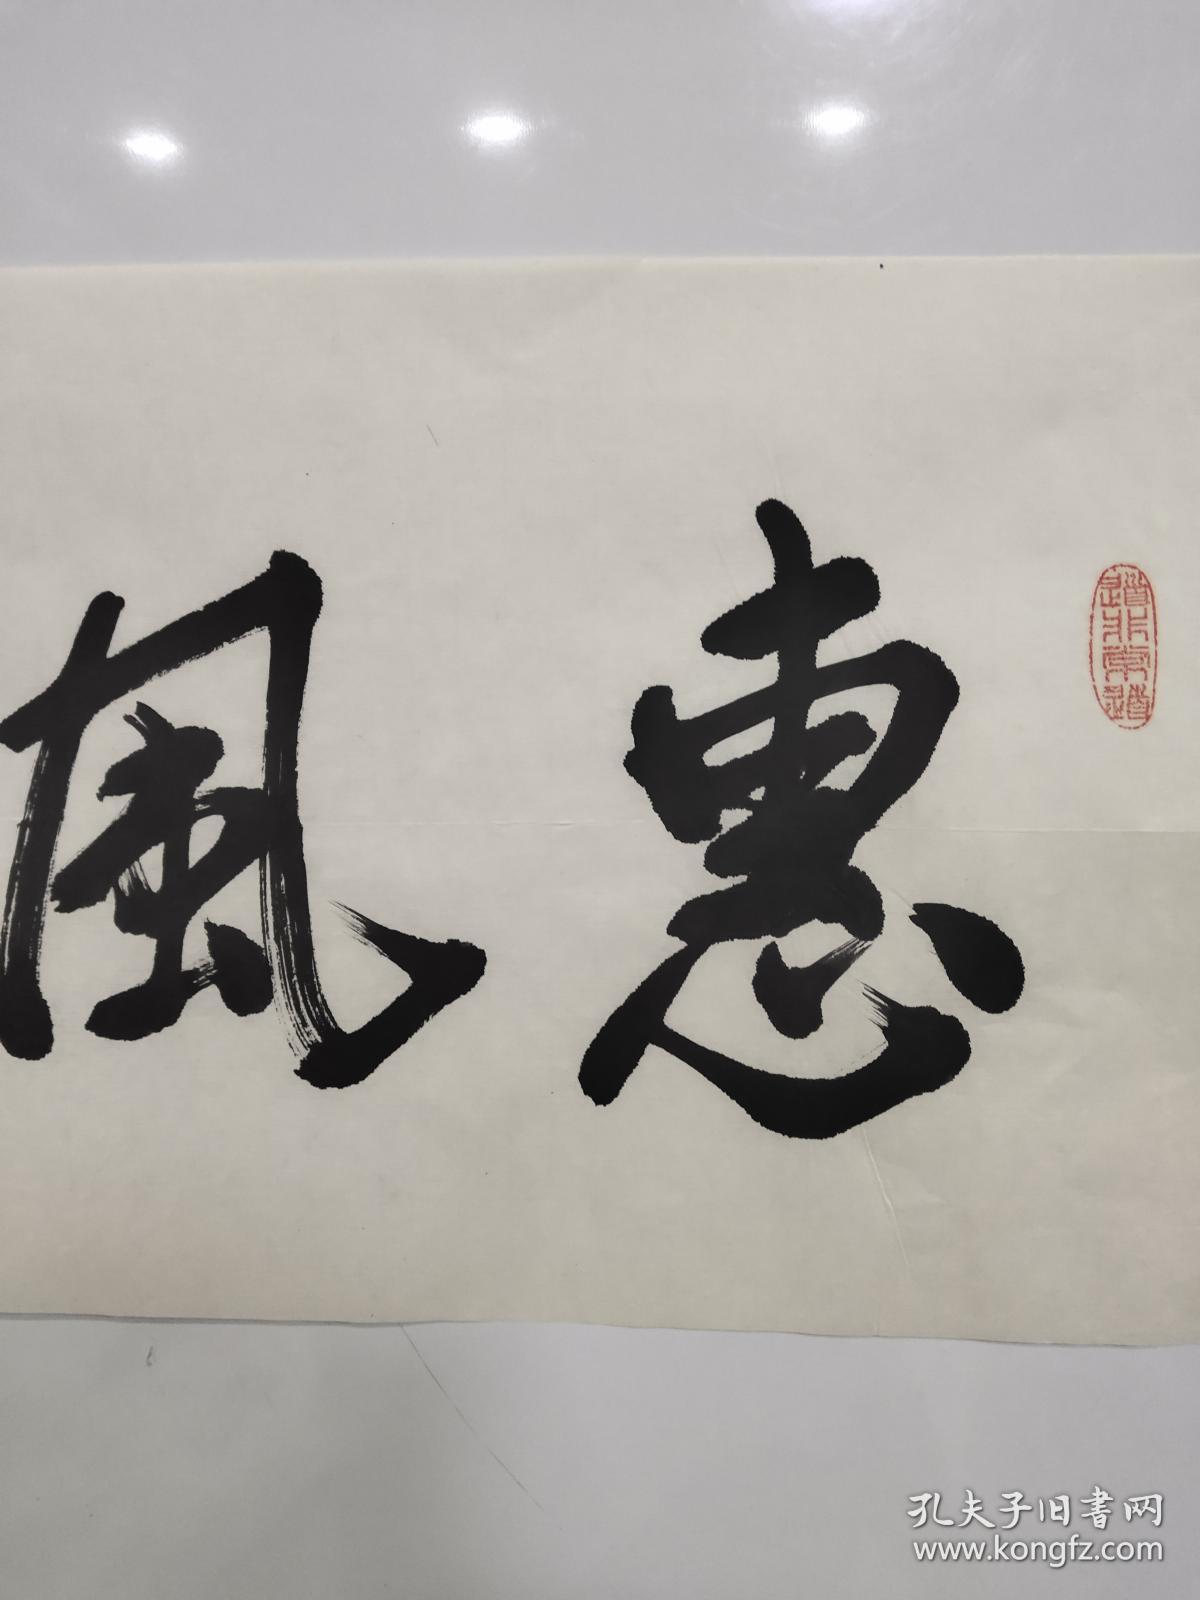 惠風
道非常道
孔夫子旧书网
www.kongfz.com